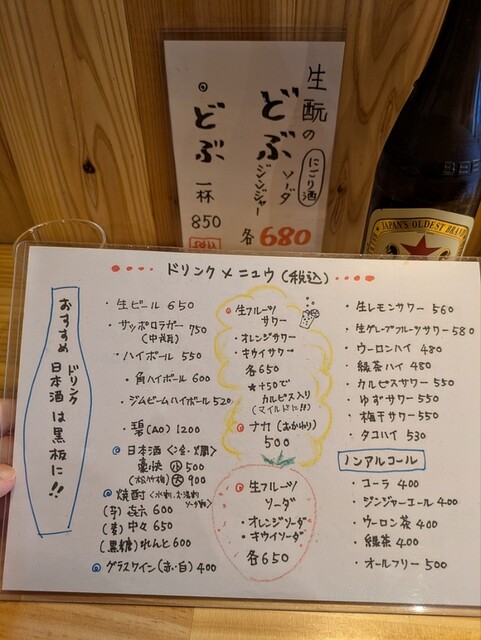 生酛の
にごり酒
どぶ
ソーダ
ジンジャー
各680
どぶ
一杯
850
JAPAN'S OLDEST BRAND
ドリンクメニュウ(税込)
おすすめ
ドリンク
日本酒は黒板に!!
・生ビール 650
・サッポロラガー 750
(中瓶)
・ハイボール 550
・角ハイボール 600
・ジムビームハイボール 520
・碧(AO) 1200
日本酒〈冷・燗〉
豪快 小 500
(松竹梅) 大 900
焼酎〈水割・お湯割
ソーダ割〉
(芋) 㐂六 600
(麦) 中々 650
(黒糖) れんと 600
グラスワイン(赤・白) 400
生フルーツ
サワー
・オレンジサワー
・キウイサワー
各650
★+50で
カルピス入り
(マイルドに!!)
ナカ(おかわり)
500
生フルーツ
ソーダ
・オレンジソーダ
・キウイソーダ
各650
・生レモンサワー 560
・生グレープフルーツサワー 580
・ウーロンハイ 480
・緑茶ハイ 480
・カルピスサワー 550
・ゆずサワー 550
・梅干サワー 550
・タコハイ 530
ノンアルコール
・コーラ 400
・ジンジャーエール 400
・ウーロン茶 400
・緑茶 400
・オールフリー 500